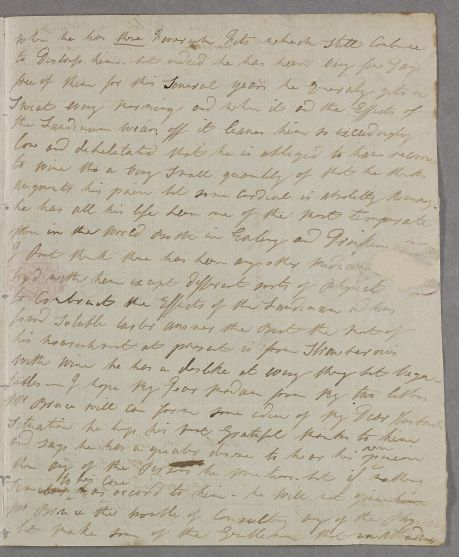 when he has those Feverish Fits which still Continue
to Distress him. but indeed he has been very few Days
free of them for this Several years he Generaly gets a
Sweat every morning and when it and the Effects of
the Laudanum wears off it leaves him so exceedingly
low and debilitated that he is obleged to have recourse
to wine tho a very small quantity of that he thinks
augments his pain but some Cordial is absolutly
he has all his life been one of the most temperate
Men in the World Both in Eating and Drinking
I Dont think there has been any other medicine
with him except different sorts of Physick
to the Effects of the Laudanum he has
found Soluble answer the Best the rest of
his nourishment at present is from Strawberries
with wine he has a deslike at every thing but Vege-
tables — I hope My Dear Madam from My two letters
Mr Bruce will can form some idea of My Dear Husbands
Situation he begs his most Grateful thanks to him
and says he has a greater desire to hear his own opinion
than any of the he mentions but if nothing
to his Case occurd to him he will not give him
Mr Bruce the trouble of Consulting any of the
but some of the Gentlemen